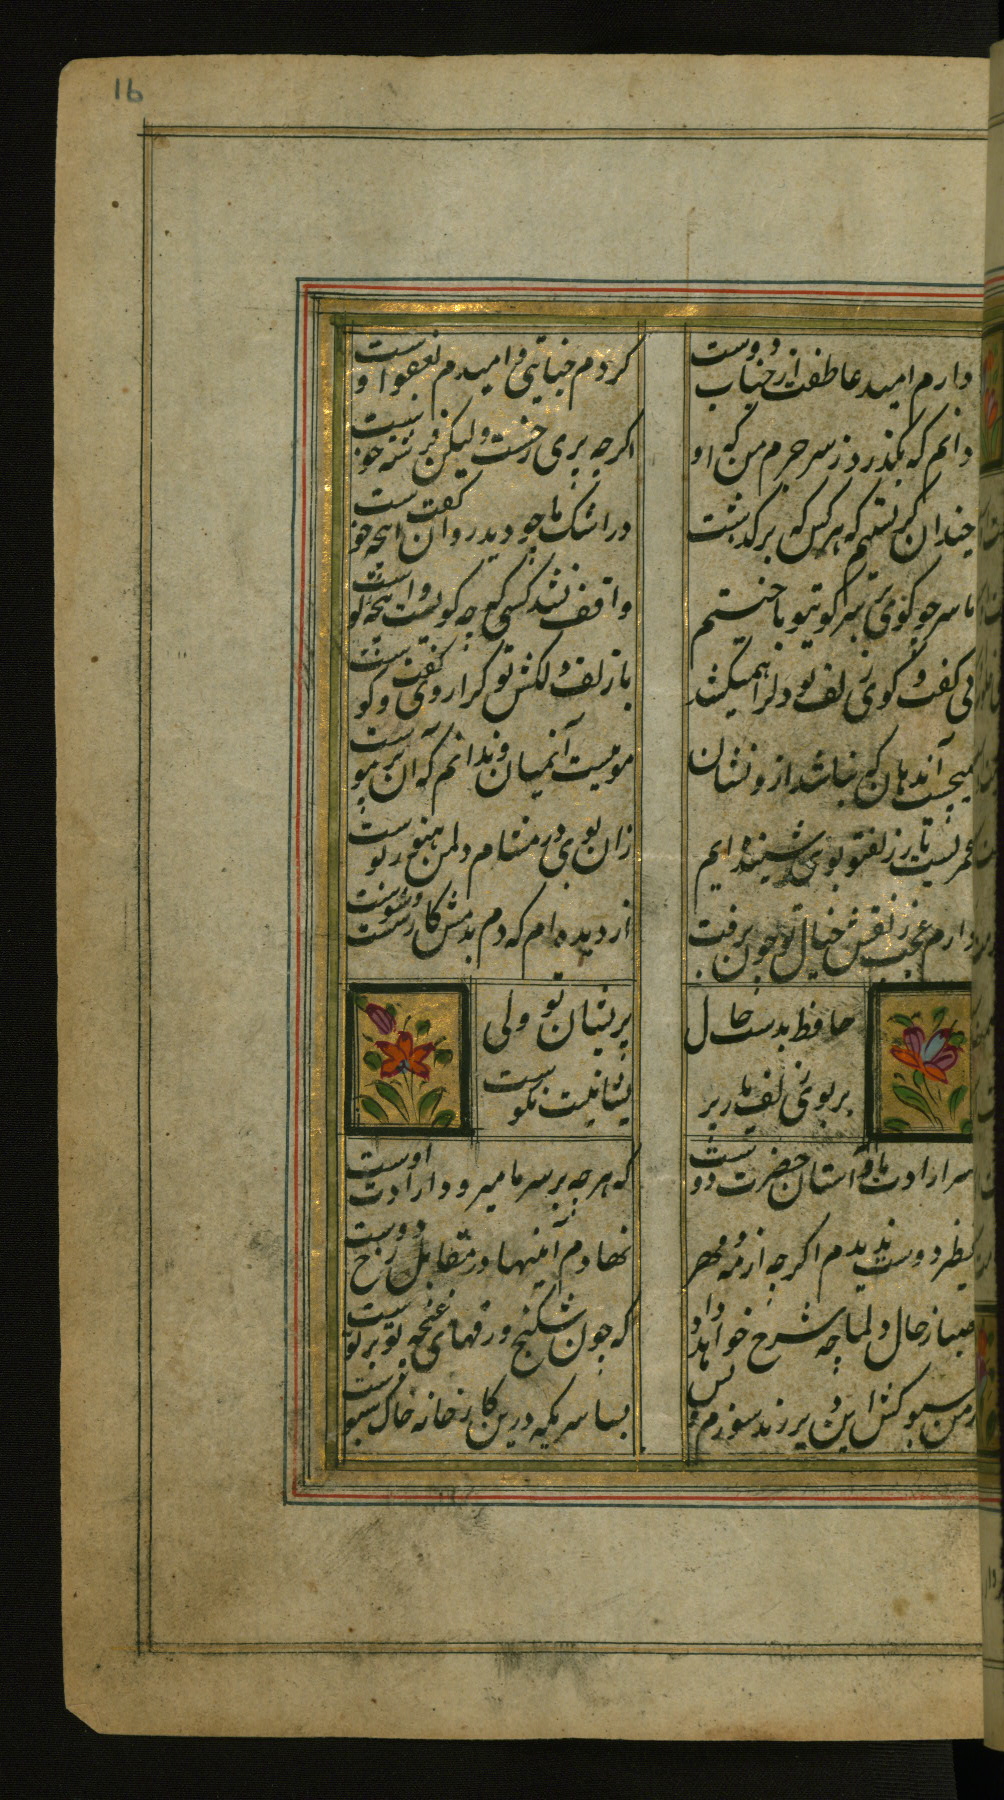 16
دارم امید عاطفتی از جناب دوست
کردم جنایتی و امیدم بعفو اوست
دانم که بگذرد ز سر جرم من که او
اگر چه پری وشست ولیکن فرشته خوست
چندان گریستیم که هر کس که برگذشت
در اشک ما چو دید روان گفت
ما سر چو گوی بر سر کوی تو باختیم
واقف نشد کسی که چه گوست و این چه کوست
بی گفت و گوی زلف تو دل را همیکشد
با زلف دلکش تو کرا روی گفت و گوست
هیچست آن دهان که نباشد ازو نشان
مویست آن میان و ندانم که آن چه موست
عمریست تا ز زلف تو بوی شنیده ایم
زان بوی در مشام دل من هنوز بوست
دارم عجب ز نقش خیال تو چون نرفت
از دیده ام که دم بدمش کار شست و شوست
حافظ بدست حال
پریشان تو ولی
بر بوی زلف یار پر
یشانیت نکوست
سر ارادت ما و آستان حضرت دوست
که هر چه بر سر ما میرود ارادت اوست
نظیر دوست ندیدم اگر چه از مه و مهر
نهادم آینها در مقابل رخ دوست
صبا ز حال دل ما چه شرح خواهد داد
که چون شکنج ورقهای غنچه تو بر توست
نه من سبو کش این دیر رند سوزم و بس
بسا سر یکه درین کارخانه خاک سبوست